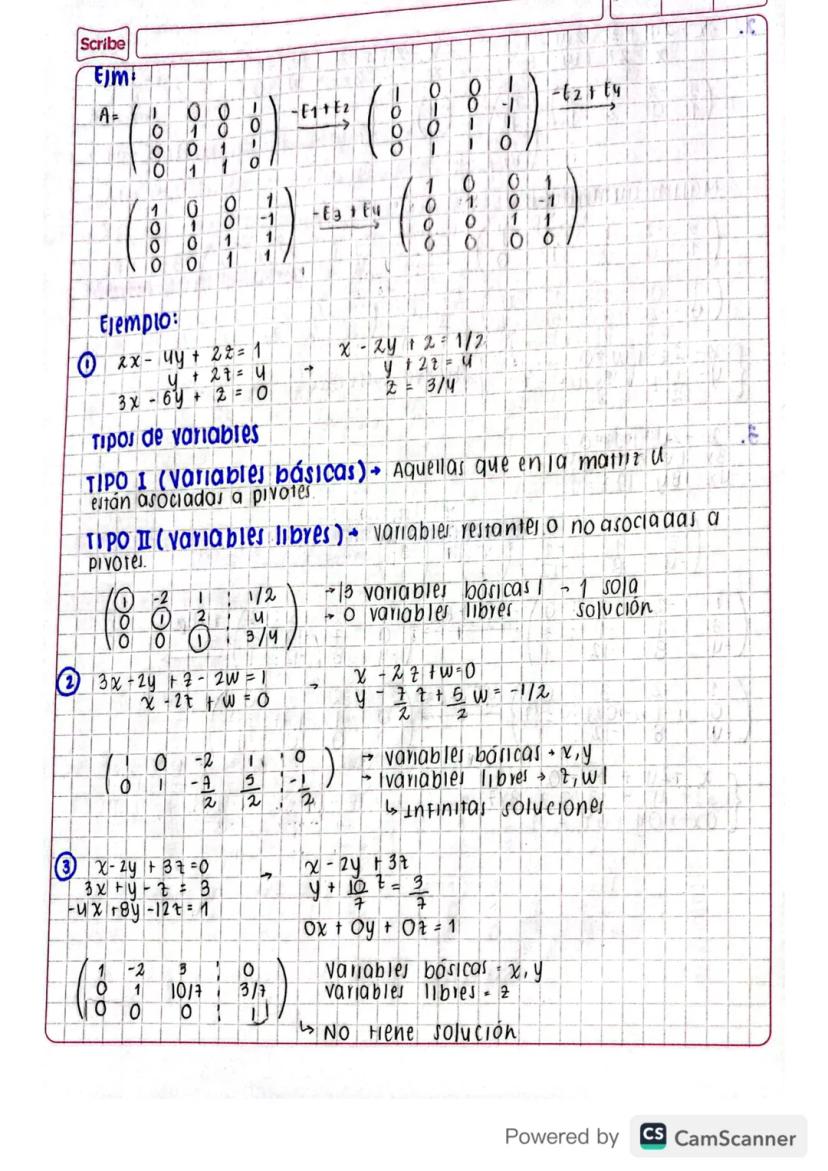 Scribe
Ejm:
A= ( 1 0 0 1 -E1+E2 ( 1 0 0 1 ) -E2+E4
0 1 0 0 0 1 0 -1
0 0 1 1 0 0 1 1
0 1 1 0 ) 0 1 1 0
( 1 0 0 1 ) -E3+E4 ( 1 0 0 1 )
0 1 0 -1 0 1 0 -1
0 0 1 1 0 0 1 1
0 0 1 1 0 0 0 0
Ejemplo:
① 2x - 4y + 2z = 1 → x - 2y + z = 1/2
y + 2z = 4 y + 2z = 4
3x - 6y + z = 0 z = 3/4
Tipos de variables
TIPO I (variables básicas) → Aquellas que en la matriz U
están asociadas a pivotes
TIPO II (variables libres) → variables restantes o no asociadas a
pivotes.
( ① -2 1 ¦ 1/2 ) → |3 variables básicas| → 1 sola
0 ① 2 ¦ 4 → 0 variables libres solución
0 0 ① ¦ 3/4
② 3x - 2y + z - 2w = 1 → x - 2z + w = 0
x - 2z + w = 0 y - 7/2 z + 5/2 w = -1/2
( 1 0 -2 1 ¦ 0 ) → variables básicas → x, y
0 1 -7/2 5/2 ¦ -1/2 → |variables libres → z, w|
↳ Infinitas soluciones
③ x - 2y + 3z = 0 → x - 2y + 3z
3x + y - z = 3 y + 10/7 z = 3/7
-4x + 8y - 12z = 1
0x + 0y + 0z = 1
( 1 -2 3 ¦ 0 ) variables básicas = x, y
0 1 10/7 ¦ 3/7 variables libres = z
0 0 0 ¦ 1
↳ NO tiene solución
Powered by CS CamScanner